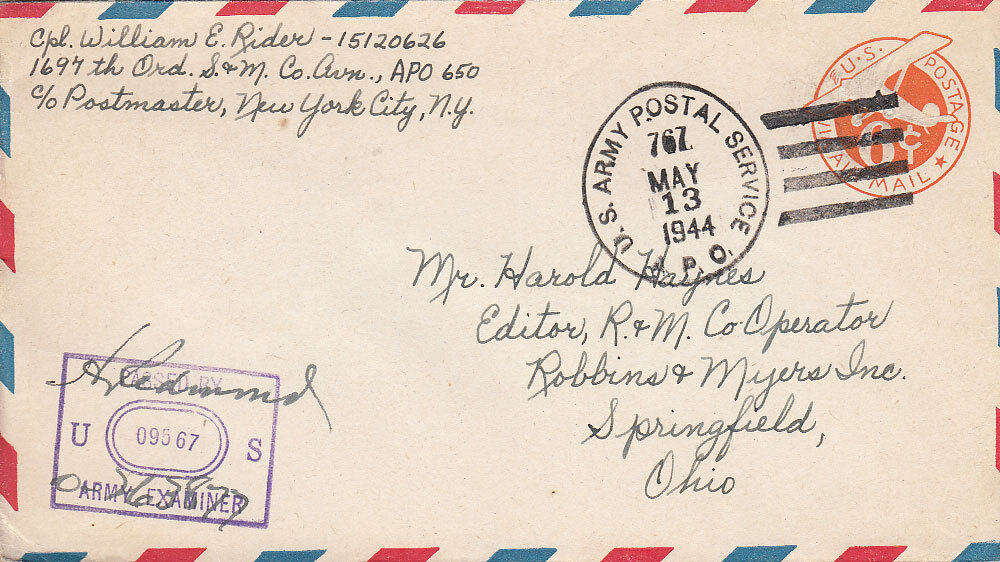 Cpl. William E. Rider - 15120626
1697th Ord. S. & M. Co. Avn., APO 650
c/o Postmaster, New York City, N.Y.
U.S. POSTAGE
VIA AIR MAIL
6¢
U.S. ARMY POSTAL SERVICE
767
MAY
13
1944
A.P.O.
Mr. Harold Haynes
Editor, R. & M. Co-Operator
Robbins & Myers Inc.
Springfield,
Ohio
PASSED BY
U 09567 S
ARMY EXAMINER